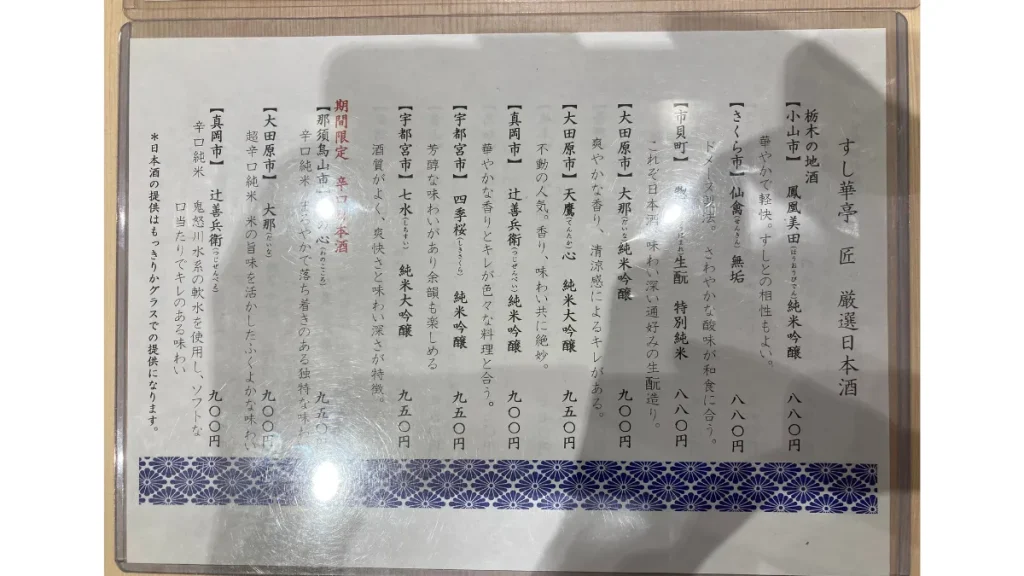 すし華亭 匠 厳選日本酒
栃木の地酒
【小山市】 鳳凰美田(ほうおうびでん)純米吟醸 八八〇円
華やかで軽快。すしとの相性もよい。
【さくら市】 仙禽(せんきん)無垢 八八〇円
ドメーヌ さわやかな酸味が和食に合う。
【市貝町】 惣誉 生酛 特別純米 八八〇円
これぞ日本酒。味わい深い通好みの生酛造り。
【大田原市】 大那(だいな)純米吟醸 九〇〇円
爽やかな香り、清涼感によるキレがある。
【大田原市】 天鷹(てんたか)心 純米大吟醸 九五〇円
不動の人気。香り、味わい共に絶妙。
【真岡市】 辻善兵衛(つじぜんべえ)純米吟醸 九〇〇円
華やかな香りとキレが色々な料理と合う。
【宇都宮市】 四季桜(しきさくら) 純米吟醸 九五〇円
芳醇な味わいがあり余韻も楽しめる
【宇都宮市】 七水(しちすい) 純米大吟醸 九五〇円
酒質がよく、爽快さと味わい深さが特徴。
期間限定 辛口日本酒
【那須烏山市】 の心 九五〇円
辛口純米 やかで落ち着きのある独特な味わい
【大田原市】 大那(だいな) 九〇〇円
超辛口純米 米の旨味を活かしたふくよかな味わい
【真岡市】 辻善兵衛(つじぜんべえ) 九〇〇円
辛口純米 鬼怒川水系の軟水を使用し、ソフトな
口当たりでキレのある味わい
*日本酒の提供はもっきりかグラスでの提供になります。